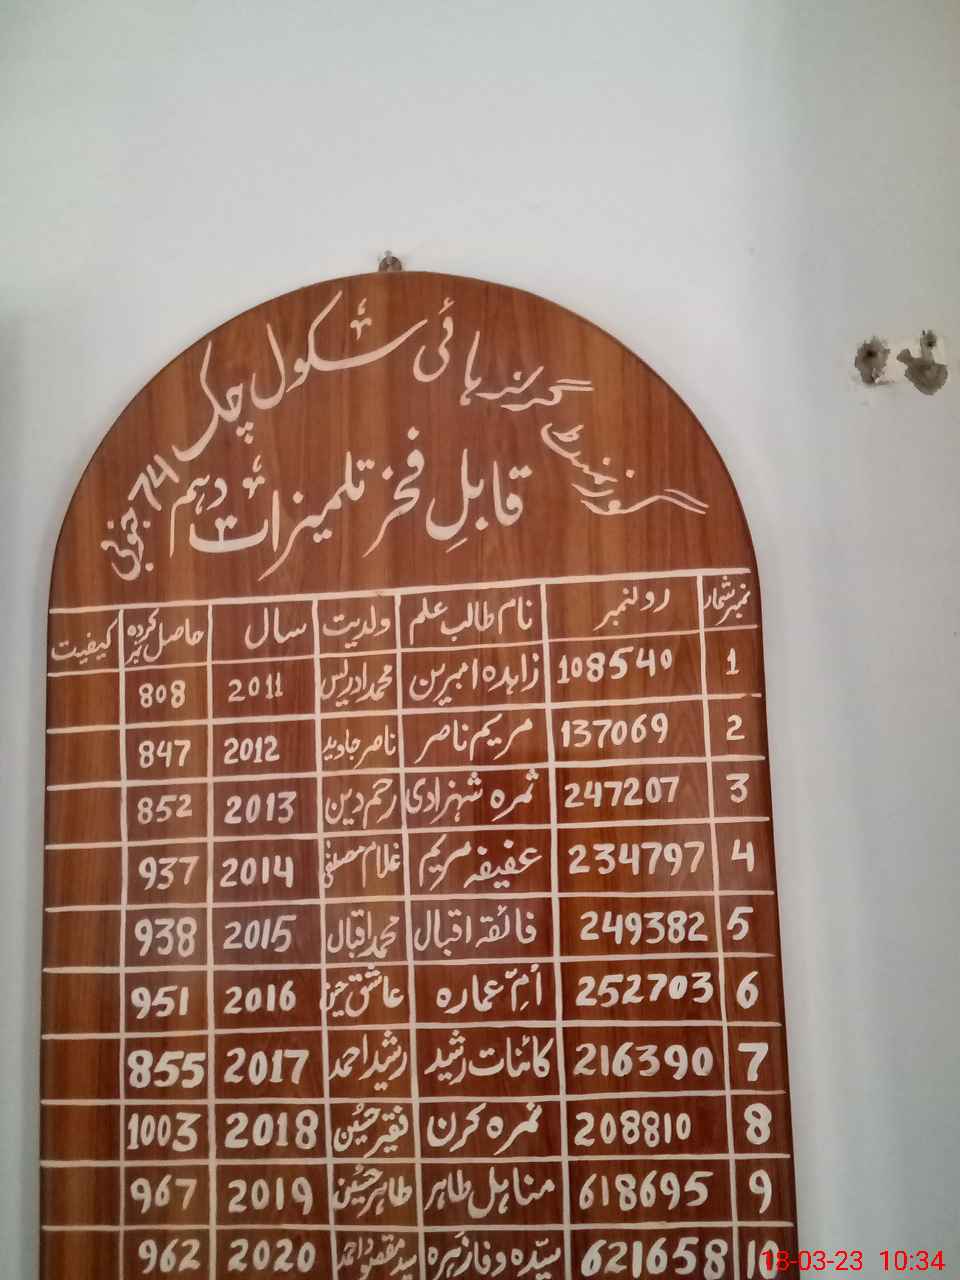 گورنمنٹ گرلز ہائی سکول چک 74 جنوبی
قابلِ فخر تلمیزات دہم
نمبر شمار رولنمبر نام طالب علم ولدیت سال حاصل کردہ نمبر کیفیت
1 108540 زاہدہ امبرین محمد ادریس 2011 808
2 137069 مریم ناصر ناصر جاوید 2012 847
3 247207 ثمرہ شہزادی رحم دین 2013 852
4 234797 عفیفہ مریم غلام مصطفی 2014 937
5 249382 فائقہ اقبال محمد اقبال 2015 938
6 252703 اُمِّ عمارہ عاشق حسین 2016 951
7 216390 کائنات رشید رشید احمد 2017 855
8 208810 ثمرہ کرن فقیر حسین 2018 1003
9 618695 مناہل طاہر طاہر حسین 2019 967
10 621658 سیّدہ وفا زہرہ سید مقصود احمد 2020 962
18-03-23 10:34